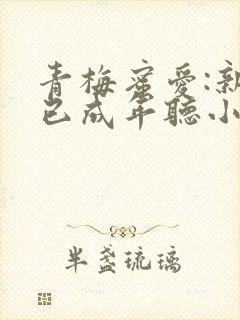 青梅蜜愛:新
已成年聽小
半盞琉璃